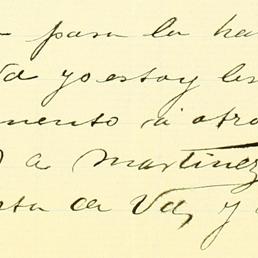 para la ha
Vd yo estoy les
mento á otro
a Martinez
ta de Vd, y